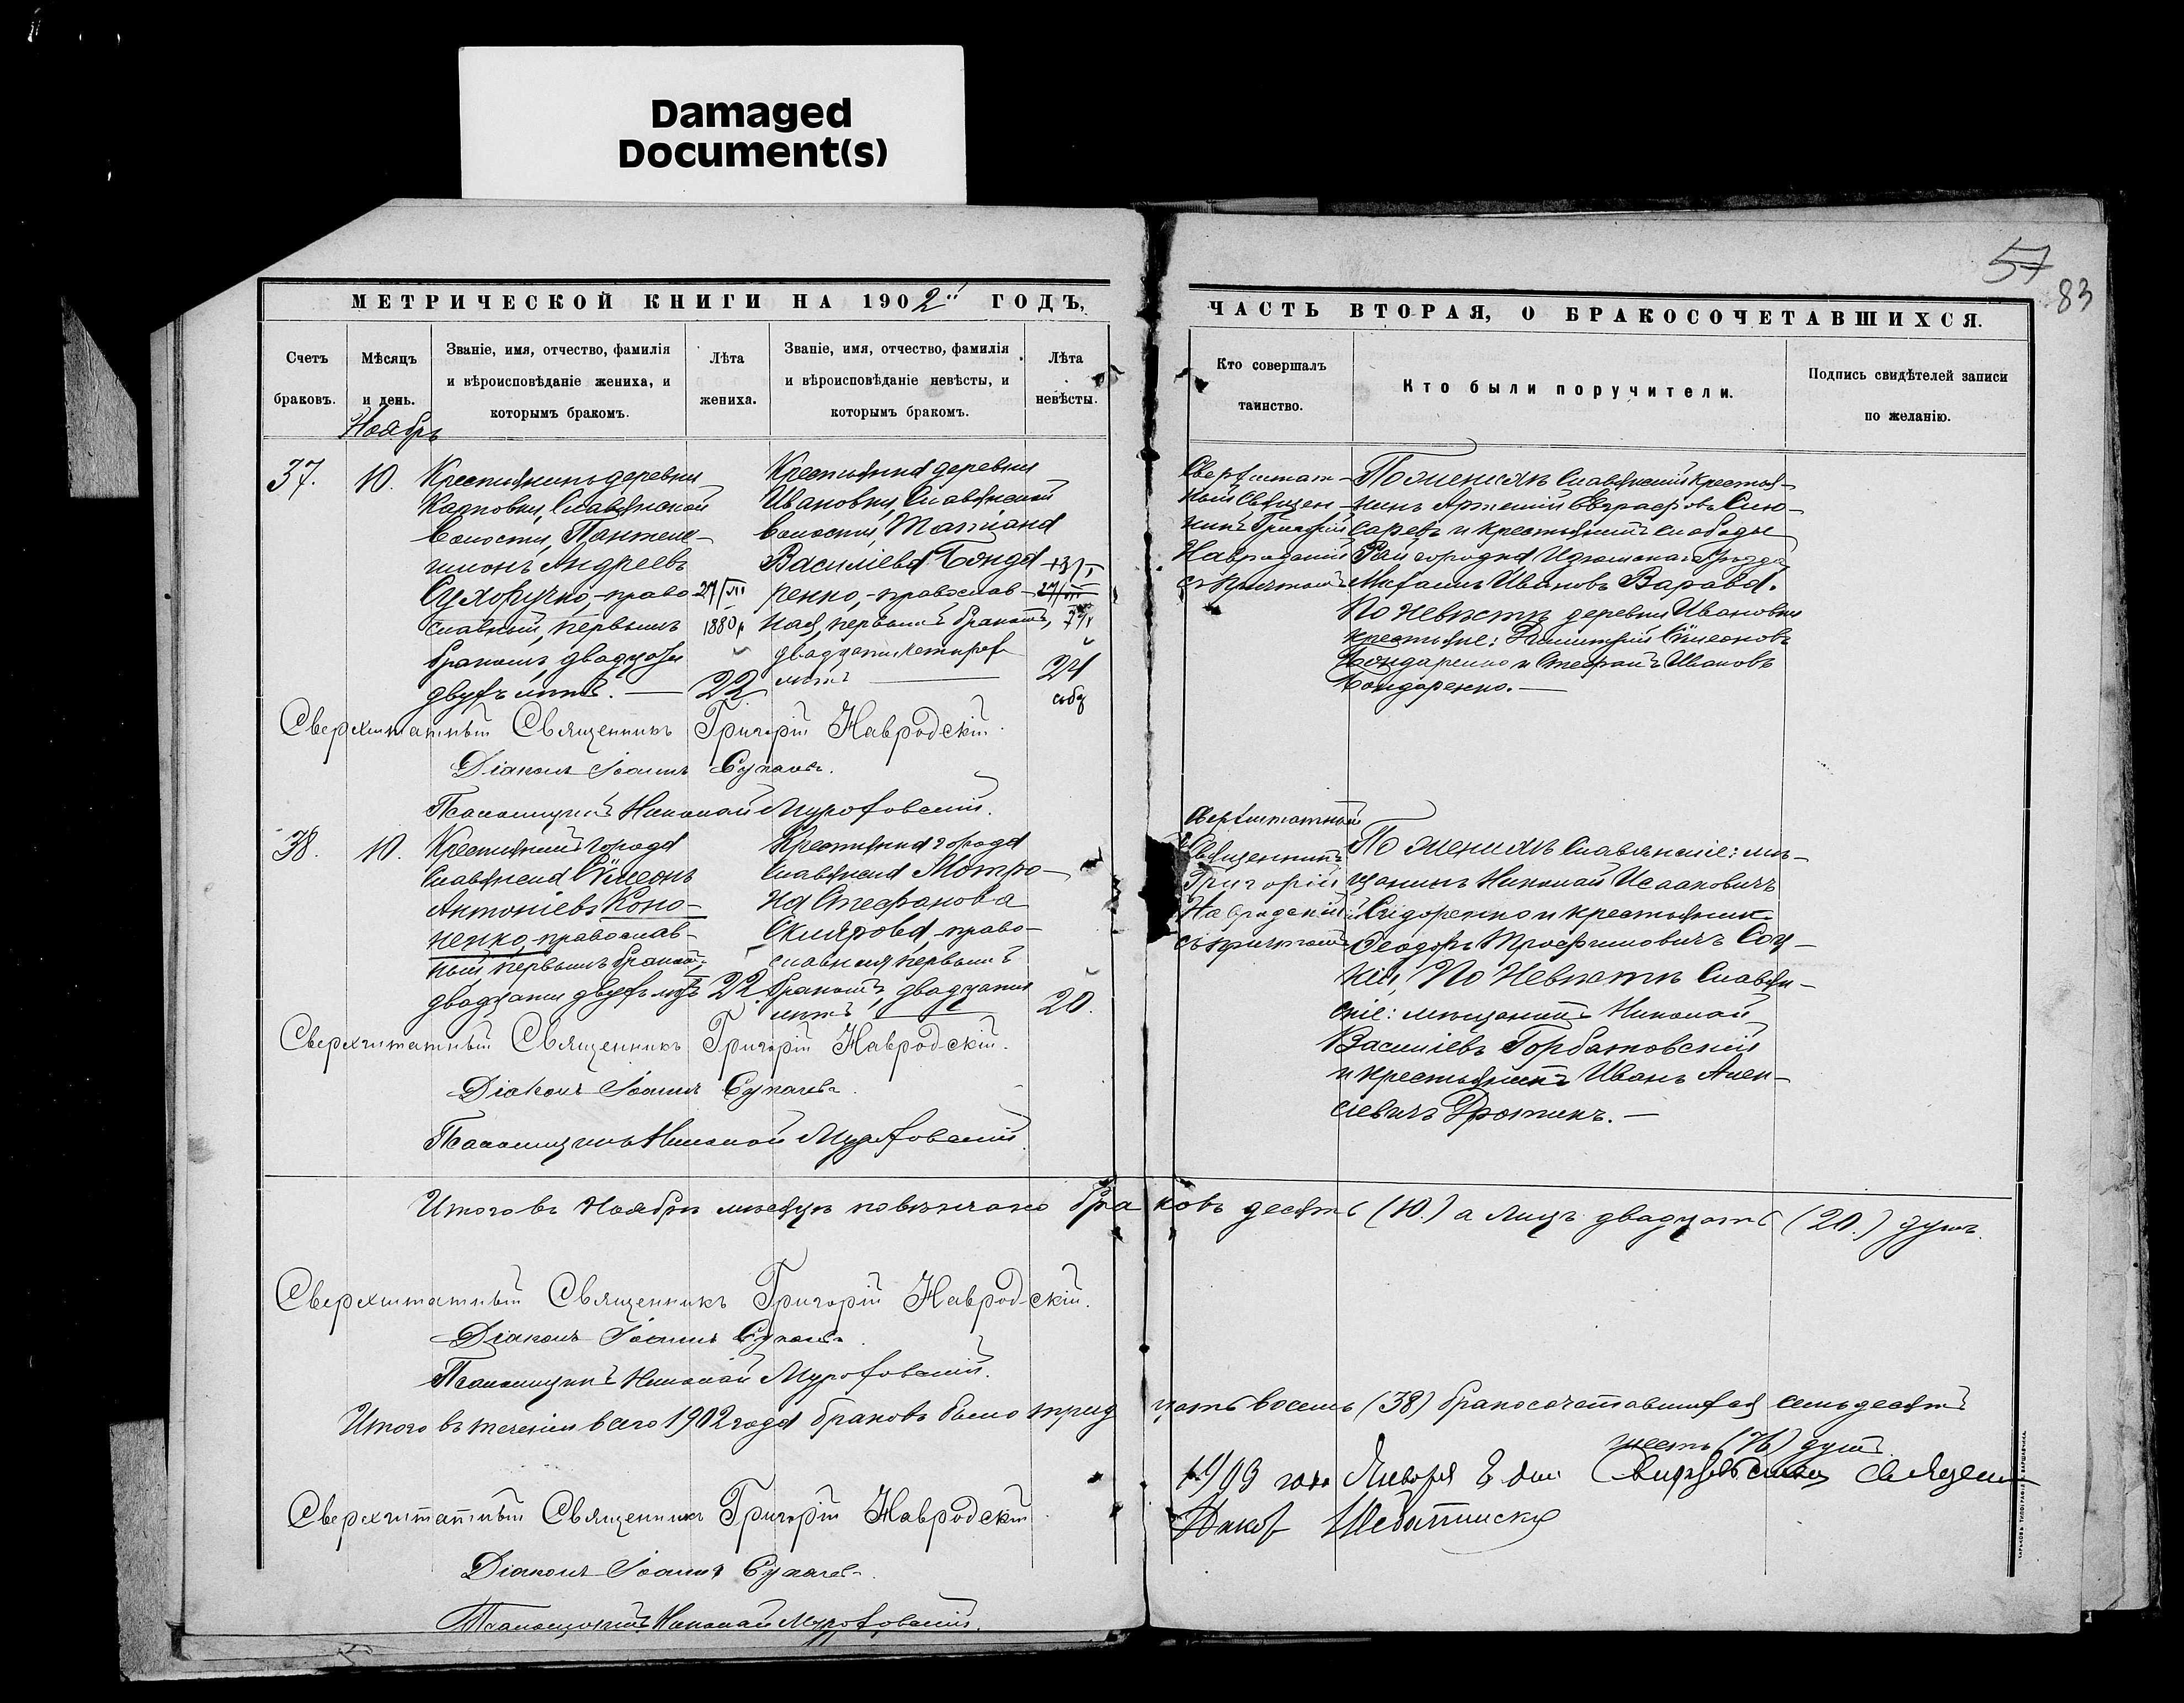 Damaged
Document(s)
57
83
МЕТРИЧЕСКОЙ КНИГИ НА 1902й ГОДЪ,
Счетъ
браковъ.
Мѣсяцъ
и день.
Званіе, имя, отчество, фамилія
и вѣроисповѣданіе жениха, и
которымъ бракомъ.
Лѣта
жениха.
Званіе, имя, отчество, фамилія
и вѣроисповѣданіе невѣсты, и
которымъ бракомъ.
Лѣта
невѣсты.
ЧАСТЬ ВТОРАЯ, О БРАКОСОЧЕТАВШИХСЯ.
Кто совершалъ
таинство.
Кто были поручители.
Подпись свидѣтелей записи
по желанію.
Ноябрь
37.
10.
Крестьянинъ деревни
Карповки, Славянской
Волости, Пантеле-
имонъ Андреевъ
Сухоручко, право
славный, первымъ
бракомъ, двадцати
двухъ лѣтъ. —
27/VII
1880 г
22
Крестьянка деревни
Ивановки, Славянской
Волости, Маріана
Василіева Бонда
ренко, православ-
ная, первымъ бракомъ,
двадцати четырех
лѣтъ —
24
Сверхштат-
ный Священ-
никъ Григорій
Навродскій
съ причтомъ
По женихѣ Славянскій крестья-
нинъ Артемій Евграфовъ Слю-
саревъ и крестьянинъ слободы
Рай городка Изюмскаго Уѣзда
Михаилъ Ивановъ Варава.
По невѣстѣ деревни Ивановки
крестьяне: Димитрій Сѵмеоновъ
Бондаренко и Стефанъ Ивановъ
Бондаренко. —
Сверхштатный Священникъ Григорій Навродскій.
Діаконъ Іоаннъ Сукачевъ.
Псаломщикъ Николай Мураховскій.
38.
10.
Крестьянинъ города
Славянска Сѵмеонъ
Антоніевъ Коно-
ненко, православ-
ный первымъ бракомъ,
двадцати двухъ лѣтъ
22.
Крестьянка города
Славянска Мотро-
на Стефанова
Склярова, право-
славная первымъ
бракомъ, двадцати
лѣтъ —
20.
Сверхштатный
Священникъ
Григорій
Навродскій
съ причтомъ
По женихѣ Славянскіе: мѣ-
щанинъ Николай Исааковичъ
Сидоренко и крестьянинъ
Ѳеодоръ Трофимовичъ Соц-
кій, По Невѣстѣ Славян-
скіе: мѣщанинъ Николай
Василіевъ Горбатовскій
и крестьянинъ Иванъ Алек-
сіевичъ Дротикъ. —
Сверхштатный Священникъ Григорій Навродскій.
Діаконъ Іоаннъ Сукачевъ.
Псаломщикъ Николай Мураховскій.
Итого въ Ноябрѣ мѣсяцѣ повѣнчано браковъ десять (10.) а лицъ двадцать (20.) душъ.
Сверхштатный Священникъ Григорій Навродскій.
Діаконъ Іоаннъ Сукачевъ.
Псаломщикъ Николай Мураховскій.
Итого въ теченіи всего 1902 года браковъ было тридцать восемь (38) бракосочетавшихся семьдесятъ
шесть (76) душъ.
1903 года Января дня
Сверхштатный Священникъ Григорій Навродскій
Діаконъ Іоаннъ Сукачевъ.
Псаломщикъ Николай Мураховскій.